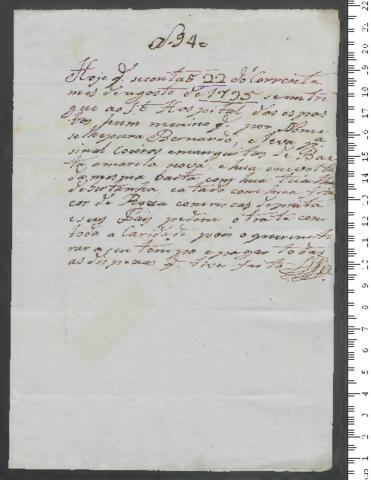 N 34
Hoje q. se contaõ 22 do Corrente
mes de agosto de 1795 se entre
gue ao Sr. Hospital dos expos
tos hum menino q. por nome
se hepura Bernardo, e leva por
sinal coeiros emanguitos de Bae
ta amarela nova, e hua envolta
da mesma baeta com hua tira
debertanha, e atado com hua fita
cor de Roza com riscas de prata
e seus Pais pedem o trate com
toda a Caridade pois o
rar a seu tempo e pagar todas
as despezas q. tiver feito